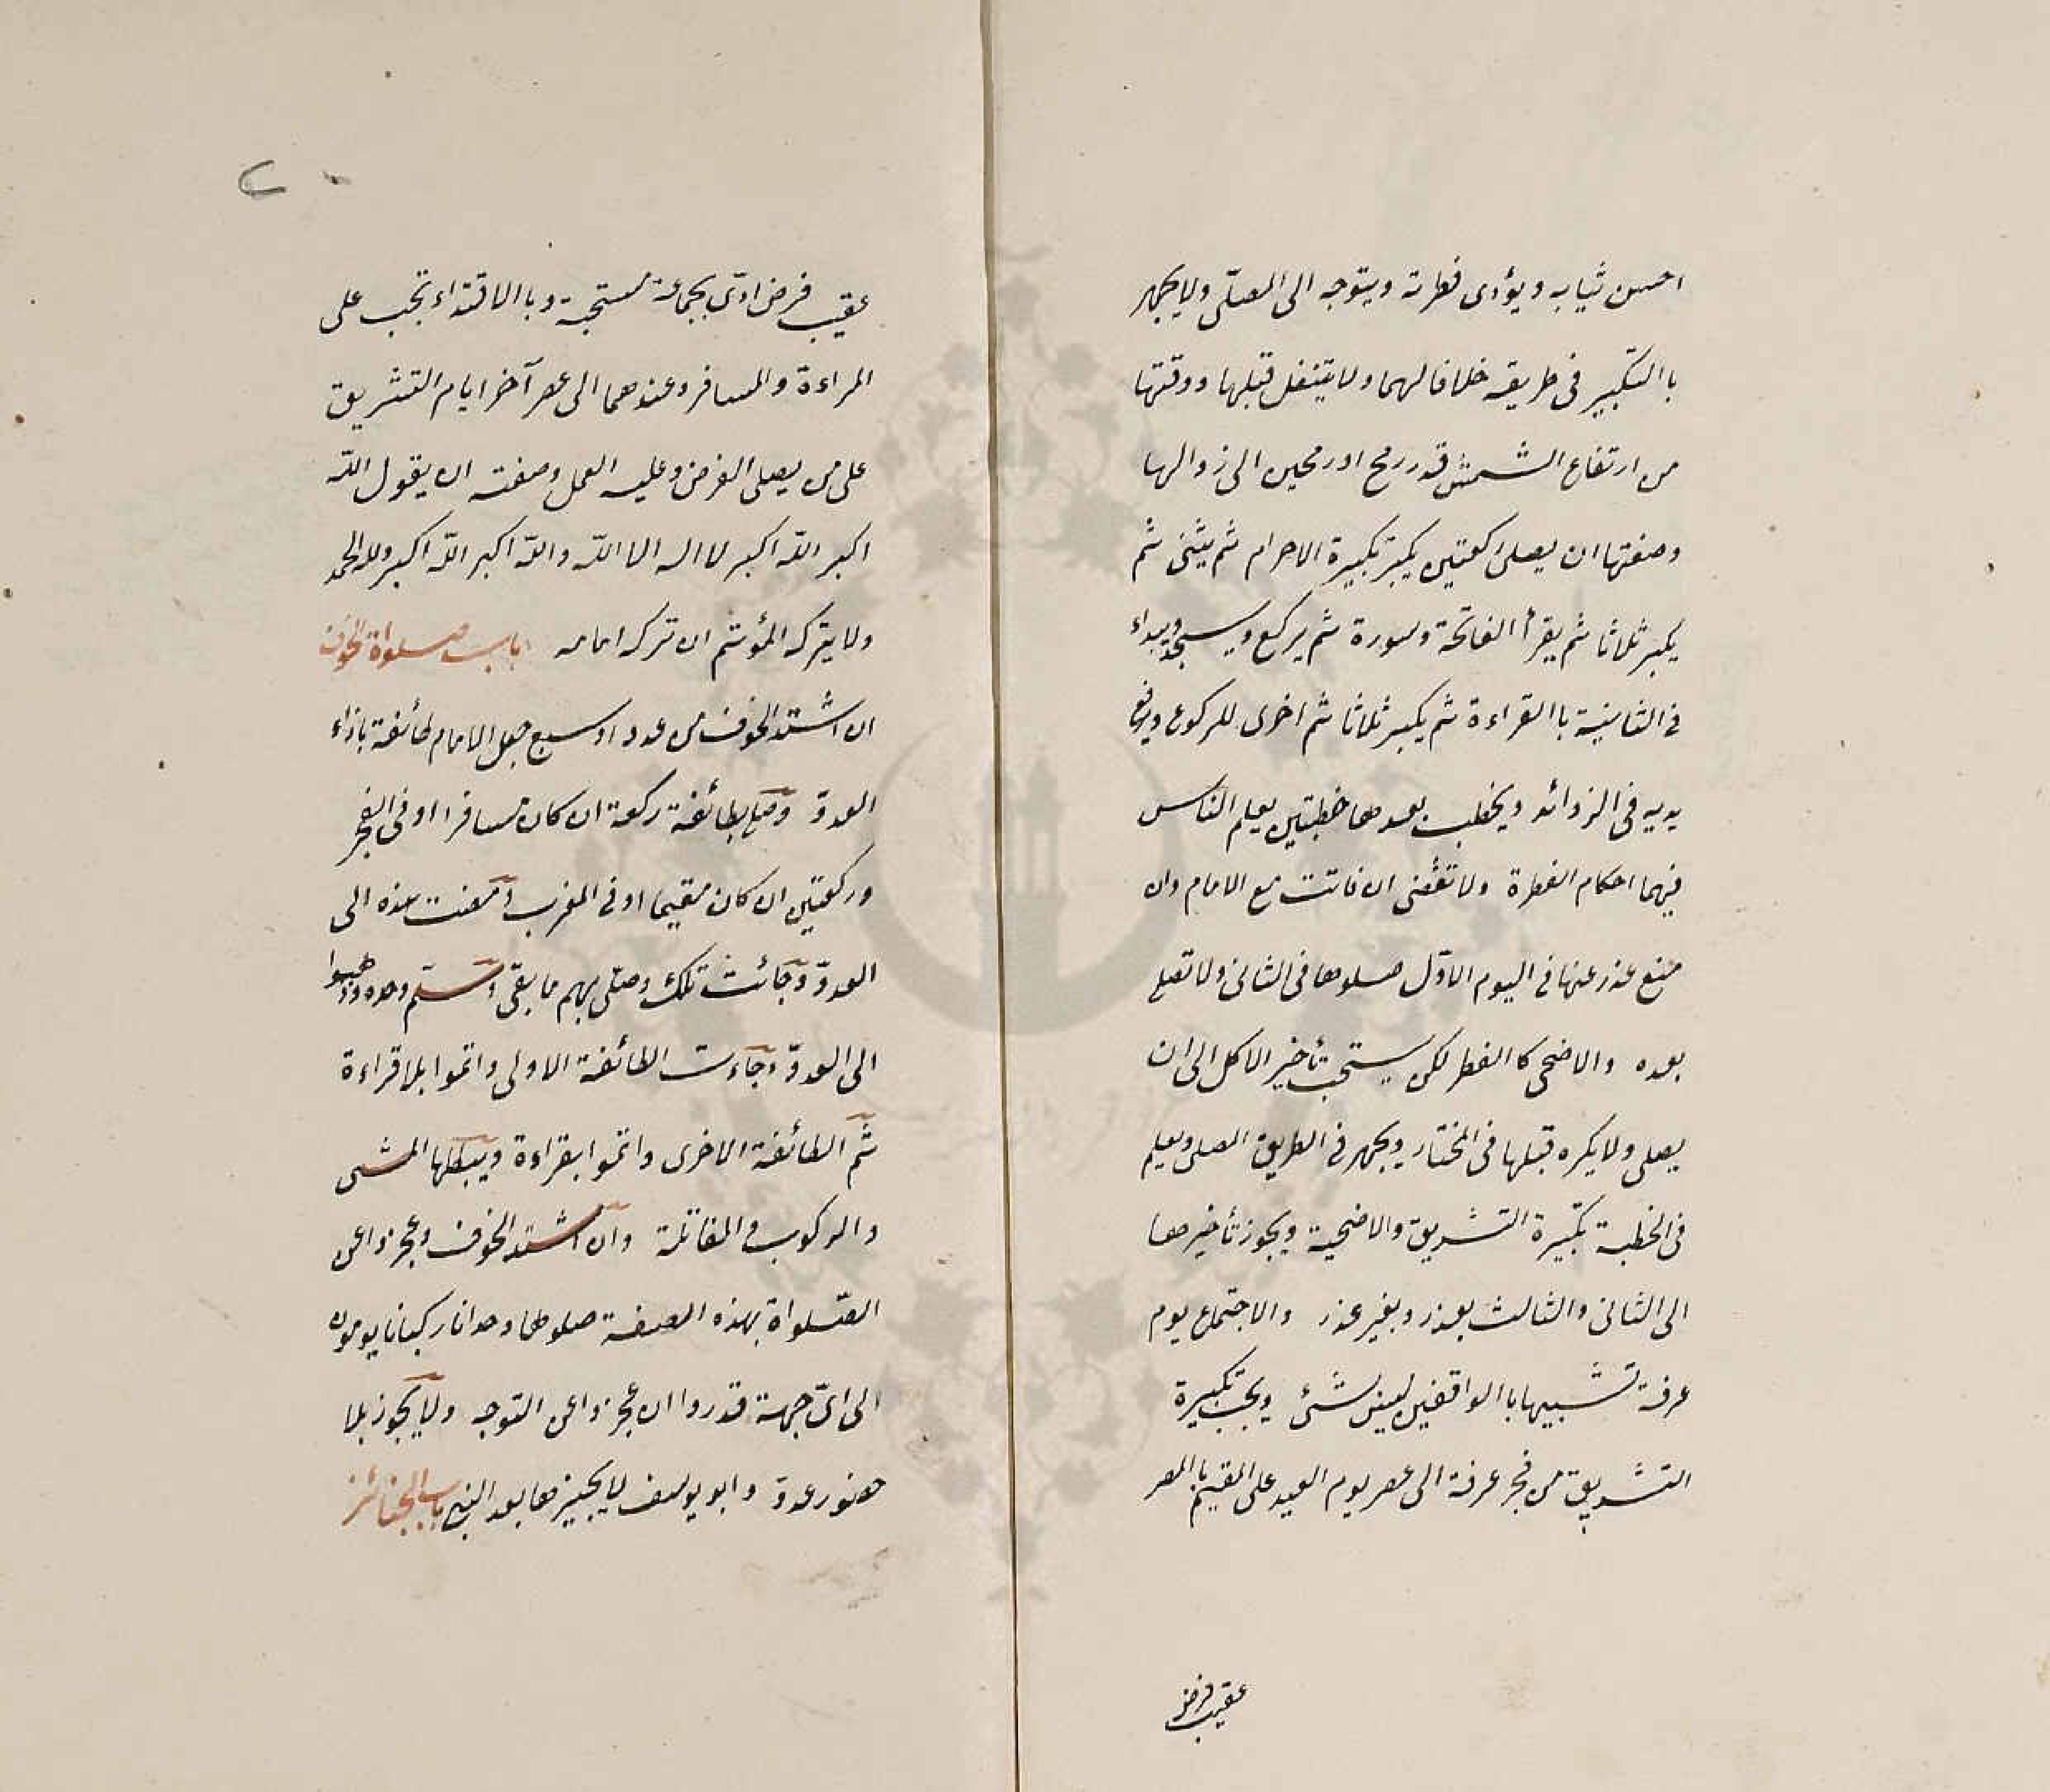 احسن ثيابه ويؤدى فطرته ويتوجه الى المصلّى ولا يجهر
با التكبير فى طريقه خلافا لهما ولا يتنفل قبلها ووقتها
من ارتفاع الشمس قدر رمح او رمحين الى زوالها
وصفتها ان يصلى ركعتين يكبر تكبيرة الاحرام ثم يثنى ثم
يكبر ثلاثا ثم يقرأ الفاتحة وسورة ثم يركع ويسجد ويبداء
فى الثانية با القراءة ثم يكبر ثلاثا ثم اخرى للركوع ويرفع
يديه فى الزوائد ويخطب بعدها خطبتين يعلم الناس
فيهما احكام الفطرة ولا تقضى ان فاتت مع الامام وان
منع عذر عنها فى اليوم الاوّل صلوها فى الثانى ولا تصلى
بعده والاضحى كا الفطر لكن يستحب تأخير الاكل الى ان
يصلى ولا يكره قبلها فى المختار ويجهر فى الطريق المصلى ويعلم
فى الخطبة تكبيرة التشريق والاضحية ويجوز تأخيرها
الى الثانى والثالث بعذر وبغير عذر والاجتماع يوم
عرفة تشبيها با الواقفين ليس بشئ ويجب تكبيرة
التشريق من فجر عرفة الى عصر يوم العيد على المقيم با المصر
عقيب فرض
عقيب فرض ادّى بجماعة مستحبة وبا الاقتداء تجب على
المراءة والمسافر وعندهما الى عصر آخر ايام التشريق
على من يصلى الفرض وعليه العمل وصفته ان يقول اللّه
اكبر اللّه اكبر لا اله الا اللّه واللّه اكبر اللّه اكبر وللّه الحمد
ولا يتركه المؤتم ان تركه امامه باب صلواة الخوف
ان اشتد الخوف من عدد او سبع جعل الامام طائفة بازاء
العدوّ وصلى بطائفة ركعة ان كان مسافرا او فى الفجر
وركعتين ان كان مقيما او فى المغرب ومضت هذه الى
العدوّ وجائت تلك وصلّى بهم ما بقى وسلّم وحده وذهبوا
الى العدوّ وجاءت الطائفة الاولى واتموا بلا قراءة
ثم الطائفة الاخرى واتموا بقراءة ويبطلها المشى
والركوب والمقاتلة وان اشتد الخوف وعجزوا عن
الصّلواة بهذه الصفة صلوها وحدانا ركبانا يومون
الى اىّ جهة قدروا ان عجزوا عن التوجه ولا يجوز بلا
حضور عدوّ وابو يوسف لا يجيزها بعد النبى باب الجنائز